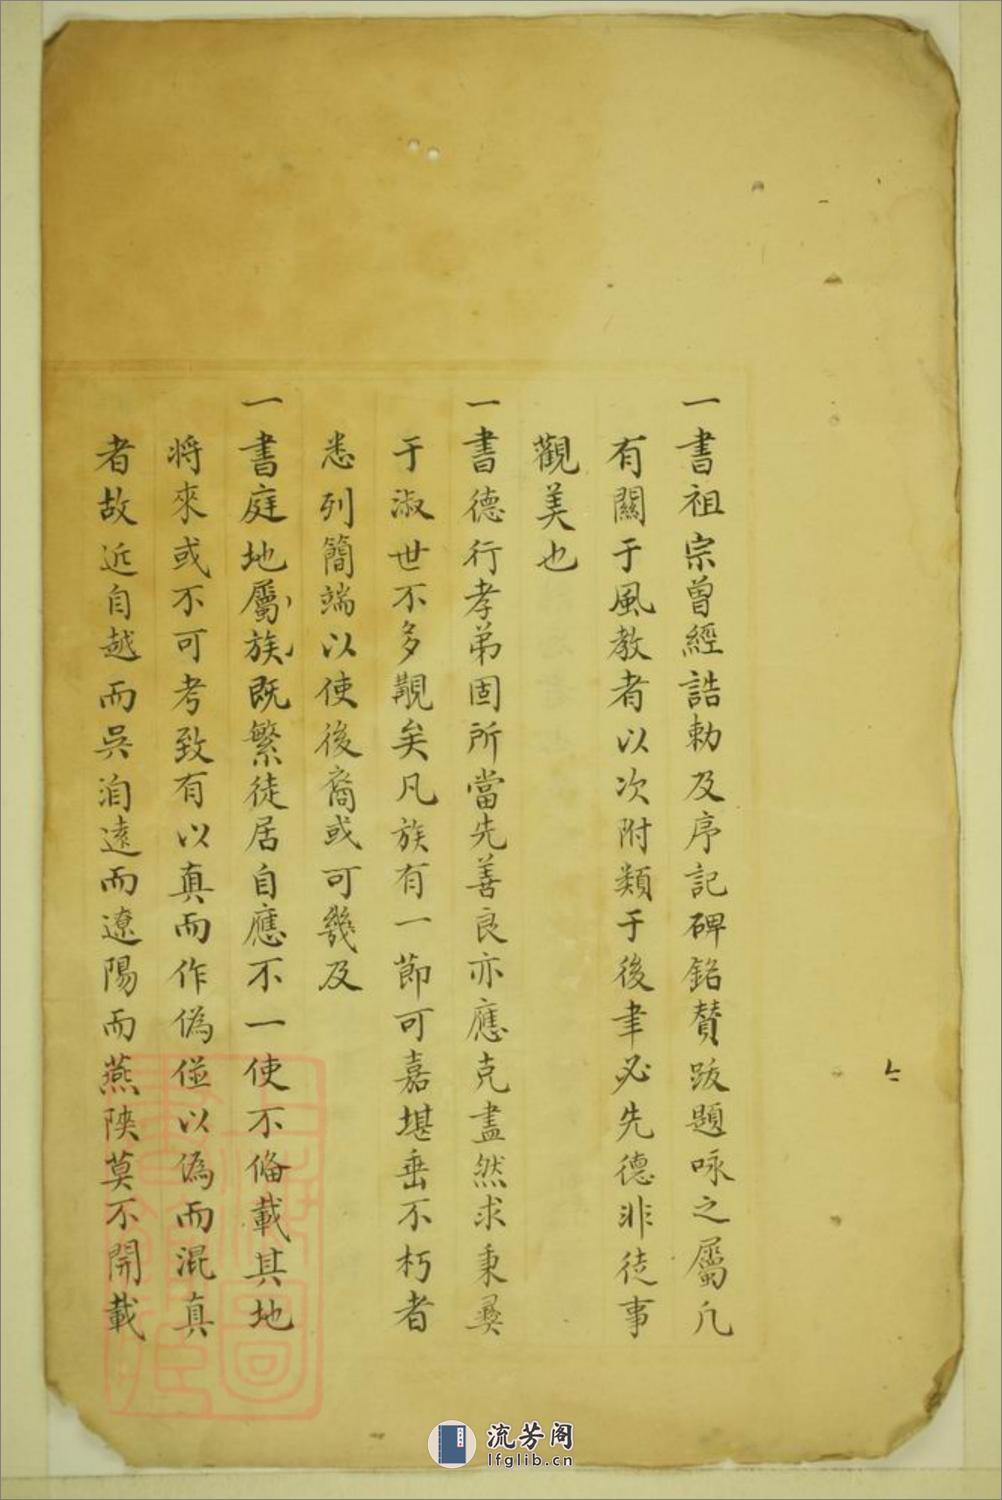 一書祖宗曾經誥勅及序記碑銘贊跋題咏之屬凡
有關于風教者以次附類于後聿必先德非徒事
觀美也
一書德行孝弟固所當先善良亦應克盡然求秉彛
于淑世不多覯矣凡族有一節可嘉堪垂不朽者
悉列簡端以使後裔或可幾及
一書庭地屬族既繁徒居自應不一使不俻載其地
將來或不可考致有以真而作偽僞以偽而混真
者故近自越而吳洎遠而遼陽而燕陜莫不開載
流芳阁
lfglib.cn